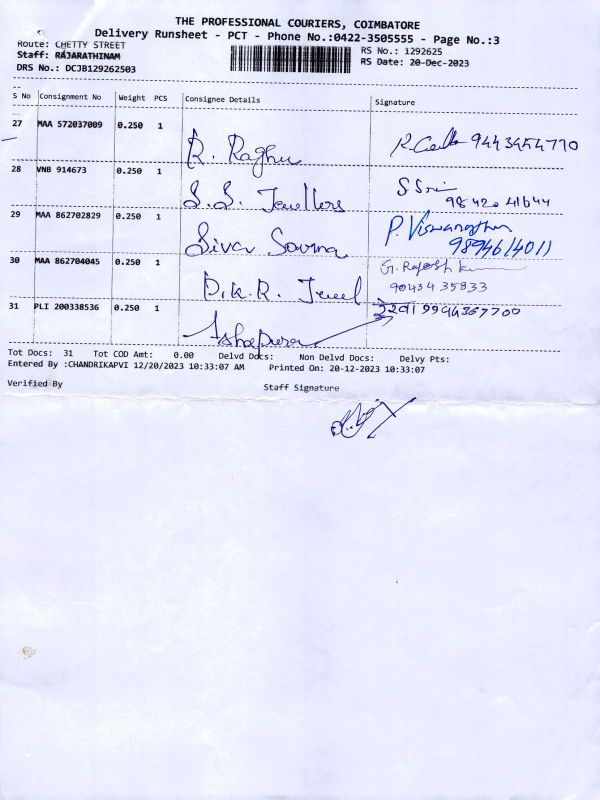 THE PROFESSIONAL COURIERS, COIMBATORE
Delivery Runsheet - PCT - Phone No.:0422-3505555 - Page No.:3
Route: CHETTY STREET RS No.: 1292625
Staff: RAJARATHINAM RS Date: 20-Dec-2023
DRS No.: DCJB129262503
S No Consignment No Weight PCS Consignee Details Signature
27 MAA 572037009 0.250 1 R. Raghu
28 VNB 914673 0.250 1 S.S. Jewellers S Sri 98420 41644
29 MAA 862702829 0.250 1 Siva Sowrna P. Viswanathan 9894614011
30 MAA 862704045 0.250 1 D.K.R. Jewel G. Rajesh kumar 90434 35833
31 PLI 200338536 0.250 1 Ashapura 9944367700
Tot Docs: 31 Tot COD Amt: 0.00 Delvd Docs: Non Delvd Docs: Delvy Pts:
Entered By :CHANDRIKAPVI 12/20/2023 10:33:07 AM Printed On: 20-12-2023 10:33:07
Verified By Staff Signature